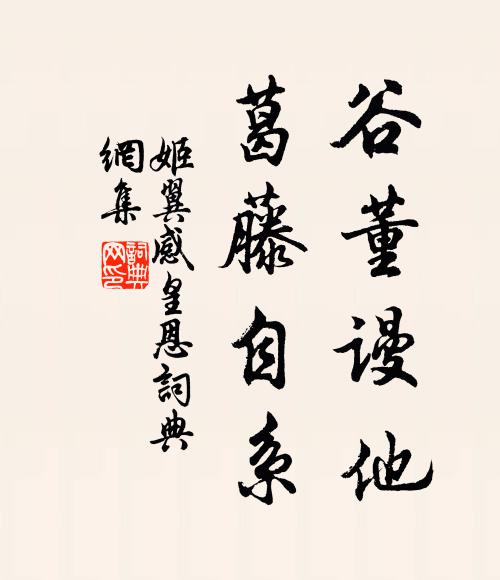 谷董谩他
葛藤自系
姬翼感皇恩詞典
網集
詞典
网印